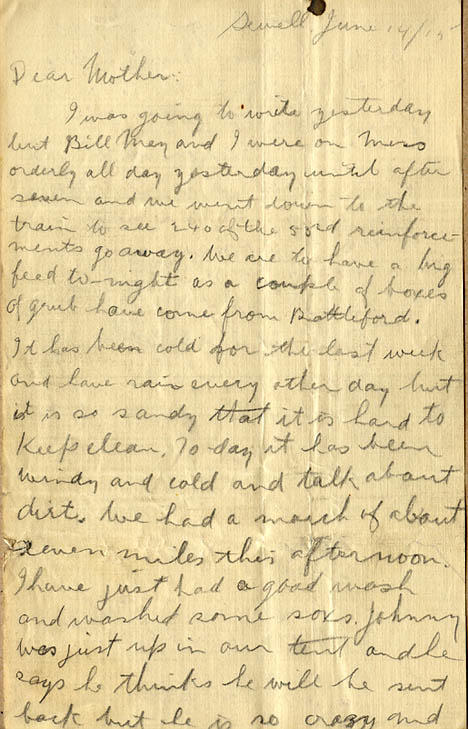 Sewell June 14/15
Dear Mother:
I was going to write yesterday
but Bill May and I were on Mess
orderly all day yesterday until after
seven and we went down to the
train to see 240 of the 53rd reinforce-
ments go away. We are to have a big
feed to-night as a couple of boxes
of grub have come from Battleford.
It has been cold for the last week
and have rain every other day but
it is so sandy that it is hard to
keep clean. To day it has been
windy and cold and talk about
dirt. We had a march of about
seven miles this afternoon.
I have just had a good wash
and washed some soxs. Johnny
was just up in our tent and he
says he thinks he will be sent
back but he is so crazy and